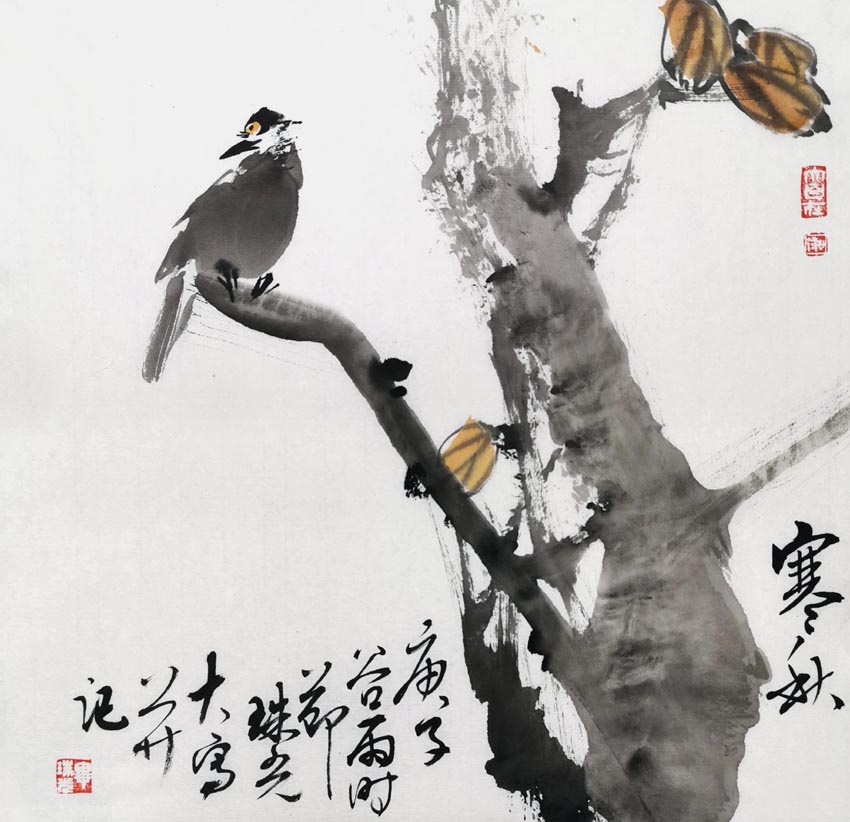 寒秋
庚子
谷雨时
节
珠光
大写
并
记